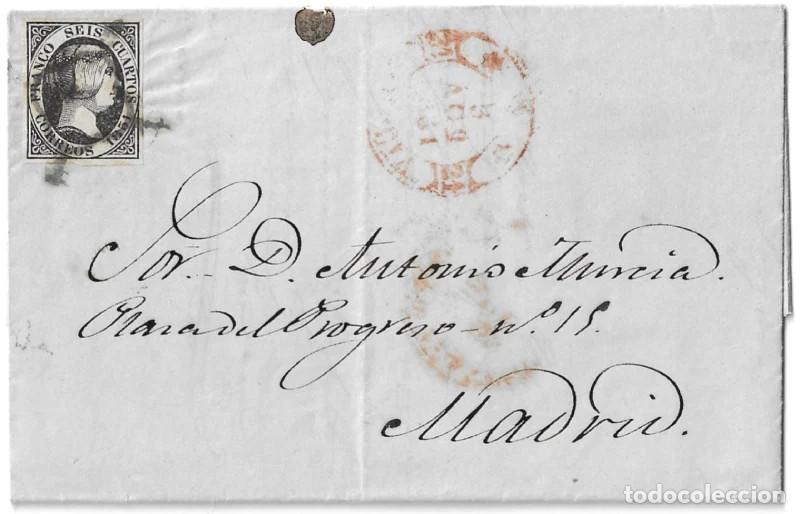 FRANCO SEIS CUARTOS
CORREOS 1851
Sor. D. Antonio Murcia.
Plaza del Progreso - nº. 15.
Madrid.
todocoleccion